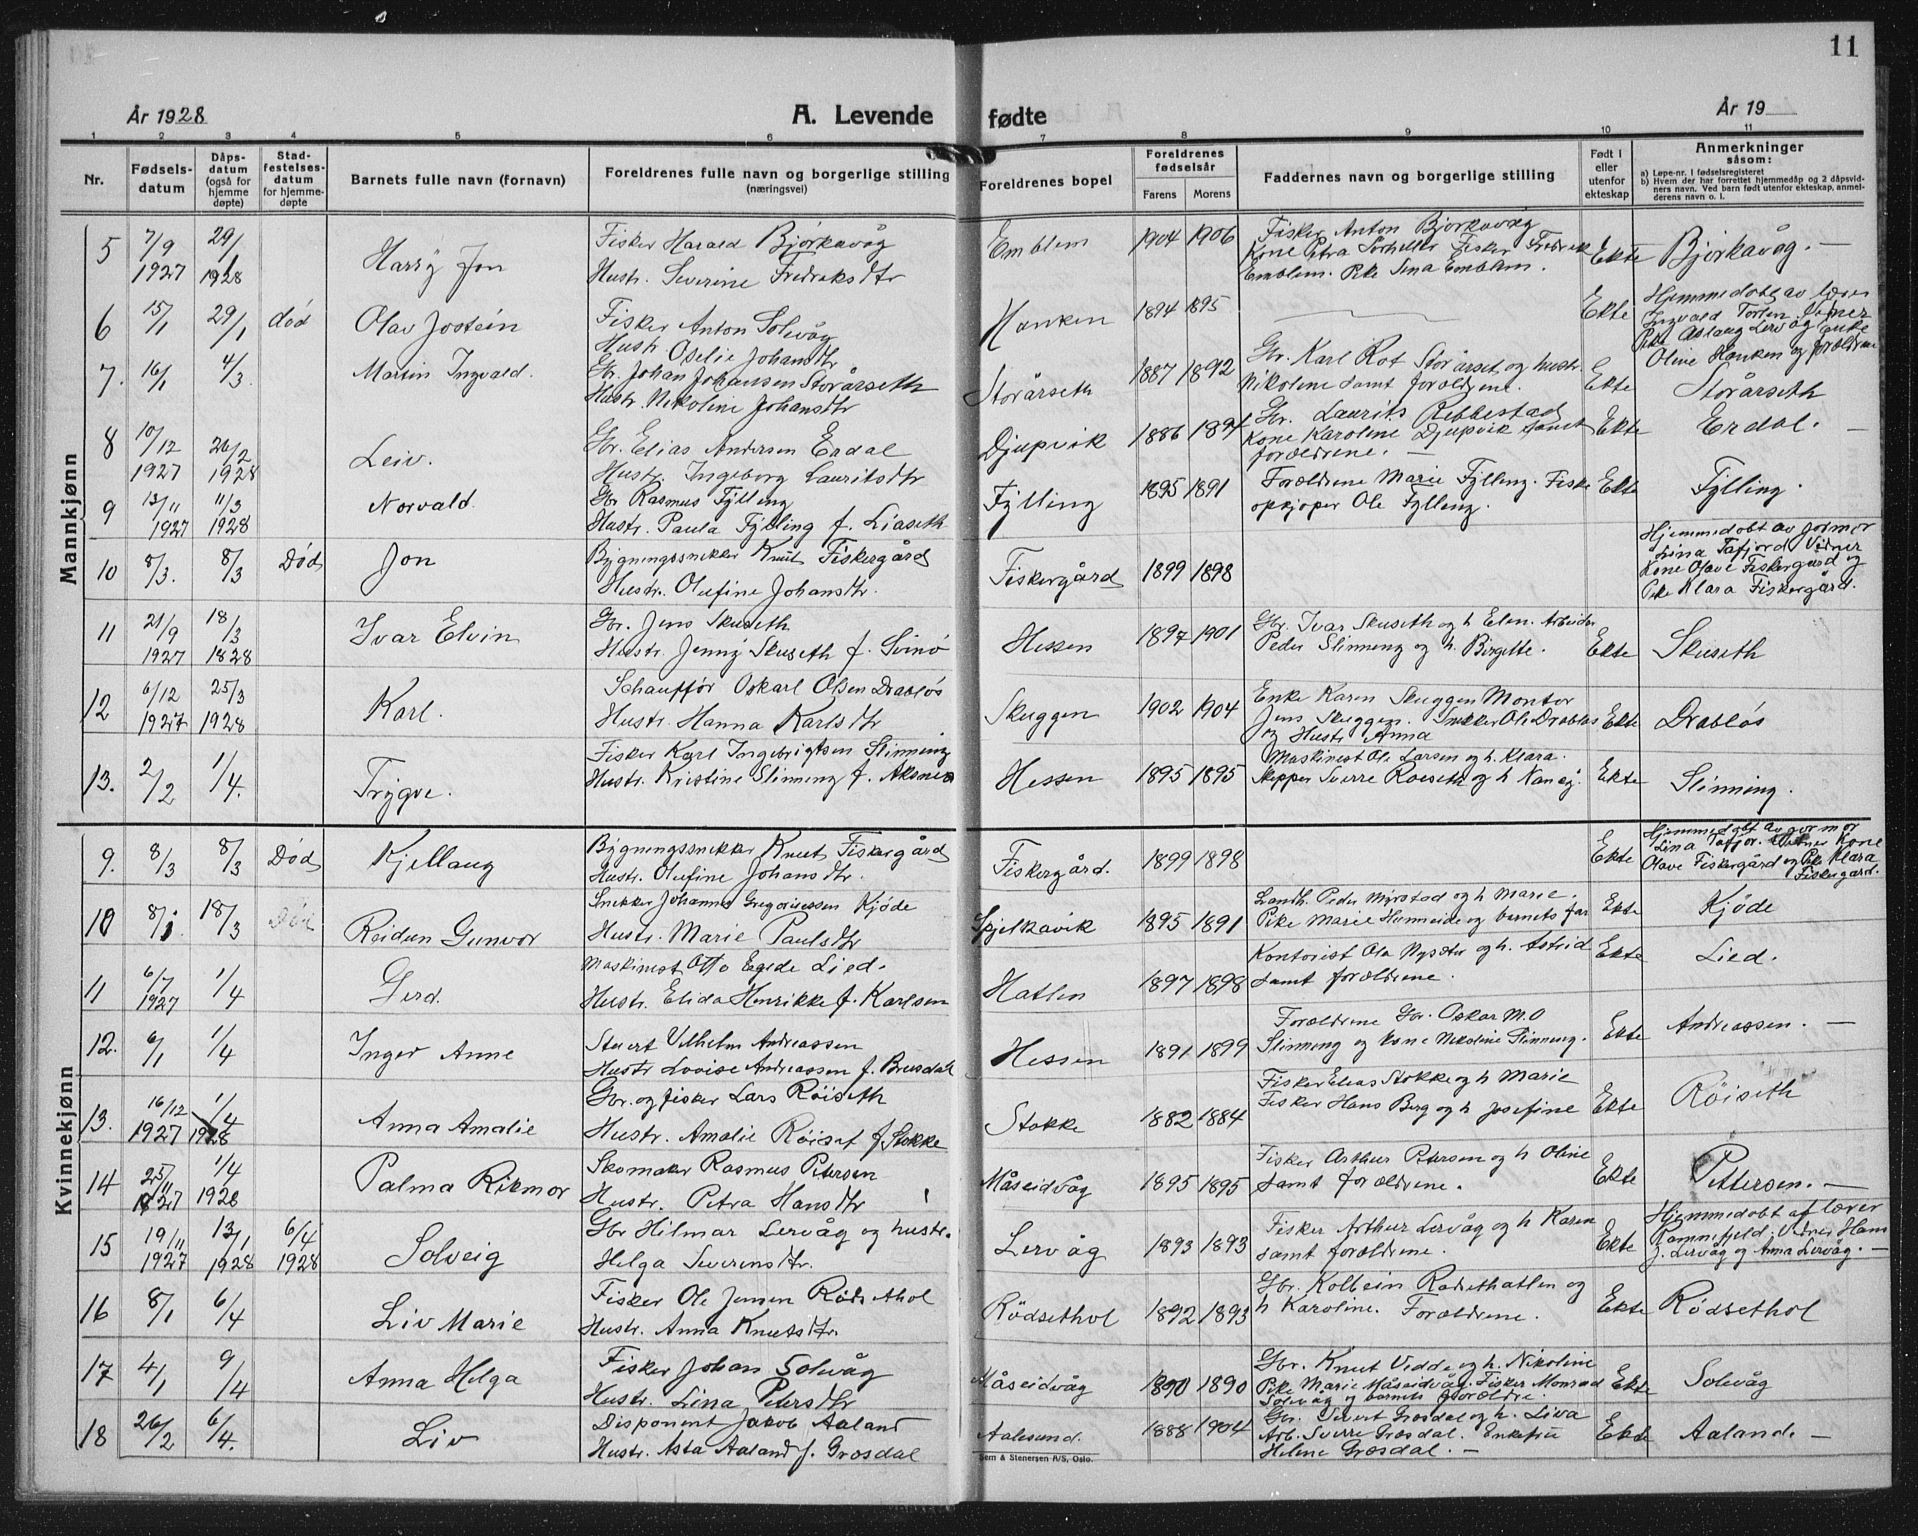 11
År 1928
A. Levende
fødte
År 19
1 2 3 4 5 6 7 8 9 10 11
Nr.
Fødsels-
datum
Dåps-
datum
(også for
hjemme
døpte)
Stad-
festelses-
datum
for hjemme-
døpte
Barnets fulle navn (fornavn)
Foreldrenes fulle navn og borgerlige stilling
(næringsvei)
Foreldrenes bopel
Foreldrenes
fødselsår
Farens
Morens
Faddernes navn og borgerlige stilling
Født i
eller
utenfor
ekteskap
Anmerkninger
såsom:
a) Løpe-nr. i fødselsregisteret
b) Hvem der har forrettet hjemmedåp og 2 dåpsvid-
ners navn. Ved barn født utenfor ekteskap, anmel-
derens navn o. l.
Mannkjønn
5 7/9 1927 29/1 1928 Harry Jon
Fisker Harald Bjørkavåg
Hustr. Severine Fredriksdtr
Emblem 1904 1906
Fisker Anton Bjørkavåg
Kone Petra Sørheller Fisker Fredrik
Emblem. Pike Sina Emblem.
Ekte Bjørkavåg. —
6 15/1 29/1 død Olav Jostein
Fisker Anton Solvåg
Hustr Ofelie Johansdtr
Hanken 1894 1895
Ekte Hjemmedøbt av lærer
Ingvald Torlen Vidner
Pike Aslaug Lervåg enke
Oline Hanken og forældrene
7. 16/1 4/3 Martin Ingvald.
Gbr. Johan Johansen Storårseth
Hustr. Nikoline Johansdtr
Storårseth 1887 1892
Gbr. Karl Rot Storårset og hustr.
Nikoline samt forældrene.
Ekte Storårseth
8 10/12 1927 26/2 1928 Leiv.
Gbr. Elias Andersen Erdal
Hustr. Ingeborg Lauritsdtr
Djupvik 1886 1894
Gbr. Laurits Ribbestad
Kone Karoline Djupvik samt
forældrene. —
Ekte Erdal. —
9 13/11 1927 11/3 1928 Norvald
Gbr Rasmus Fylling
Hustr. Paula Fylling f. Liaseth
Fylling 1895 1891
Forældrene Marie Fylling. Fiske
opkjøper Ole Fylling.
Ekte Fylling.
10 8/3. 8/3 Død Jon
Bygningssnekker Knut Fiskergård
Hustr. Olufine Johansdtr.
Fiskergård 1899 1898
Hjemmedøbt av formor
Lina Tafjord Vidner
Kone Olave Fiskergård og
Pike Klara Fiskergård.
11 21/9 1927 18/3 1828 Ivar Elvin
Gbr. Jens Skuseth
Hustr. Jenny Skuseth f. Svinø
Hessen 1897 1901
Gbr. Ivar Skuseth og h Elen. Arbeider
Peder Slinning og h. Birgitte.
Ekte Skuseth
12 6/12 1927 25/3 1928 Karl.
Schauffør Oskarl Olsen Drabløs
Hustr. Hanna Karlsdtr
Skuggen 1902 1904
Enke Karen Skuggen Montør
Jens Skuggen. Snekker Ole Drabløs
og Hustr Anna
Ekte Drabløs
13. 2/2 1/4. Trygve.
Fisker Karl Ingebrigtsen Slinning
Hustr. Kristine Slinning f. Aksnes
Hessen 1895 1895
Maskinest Ole Larsen og h. Klara.
Skipper Sverre Roeseth og h Nancy.
Ekte Slinning.
Kvinnekjønn
9. 8/3 8/3 Død Kjellaug
Bygningssnekker Knut Fiskergård
Hustr. Olufine Johansdtr.
Fiskergård. 1899 1898
Ekte Hjemmedøbt av formor
Lina Tafjor. Vidner Kone
Olave Fiskergård og Pike Klara
Fiskergård.
10 8/1. 18/3 Død Reidun Gunvor
Snekker Johannes Gregoriussen Kjøde
Hustr. Marie Paulsdtr
Spjelkavik 1895 1891
Landh. Peder Myrstad og h Marie.
Pike Marie Humneide og barnets far
Ekte Kjøde
11 6/7 1927 1/4 Gerd.
Maskinest Otto Egede Lied.
Hustr. Elida Henrikke f. Karlsen
Hatlen 1897 1898
Kontorist Ola Nysæter og h. Astrid
samt forældrene.
Ekte Lied.
12. 6/1 1/4 Inger Anne
Stuert Vilhelm Andreassen
Hustr Lovise Andreassen f. Brusdal
Hessen 1891 1899
Forældrene Gbr. Oskar M.O
Slinning og kone Nikoline Slinning.
Ekte Andreassen. —
13. 16/12 1927 1/4 1928 Anna Amalie
Gbr. og fisker Lars Røiseth
Hustr. Amalie Røiset f Stokke
Stokke 1882 1884
Fisker Elias Stokke og h Marie
Fisker Hans Berg og h Josefine
Ekte Røiseth
14 25/11 1927 1/4 1928 Palma Rikmor
Skomaker Rasmus Petersen
Hustr. Petra Hansdtr
Måseidvåg 1895 1895
Fisker Arthur Petersen og h Oline
samt forældrene.
Ekte Pettersen. —
15 19/11 1927 13/1 1928 6/4 1928 Solveig
Gbr Hilmar Lervåg og hustr.
Helga Severensdtr.
Lervåg 1893 1893
Fisker Arthur Lervåg og h Karen
samt forældrene.
Ekte Hjemmedøbt af lærer
Rammefjeld. Vidner Hans
J. Lervåg og Anna Lervåg. —
16 8/1 6/4 Liv Marie
Fisker Ole Jensen Rødsethol
Hustr. Anna Knutsdtr.
Rødsethol 1892 1893
Gbr. Kolbein Rødsethatlen og
h Karoline. Forældrene.
Ekte Rødsethol
17 4/1 9/4 Anna Helga
Fisker Johan Solvåg
Hustr. Lina Petersdtr
Måseidvåg 1890 1890
Gbr. Knut Vedde og h. Nikoline
Pike Marie Måseidvåg. Fisker Monrad
Solvåg og barnets forældre.
Ekte Solvåg
18 26/2 6/4. Liv
Disponent Jakob Aaland
Hustr. Asta Aaland f. Grøsdal
Aalesund. 1888 1904
Gbr. Sivert Grøsdal og h. Liva
Arb. Sverre Grøsdal. Enkefru
Helene Grøsdal. —
Ekte Aaland. —
Sem & Stenersen A/S, Oslo.